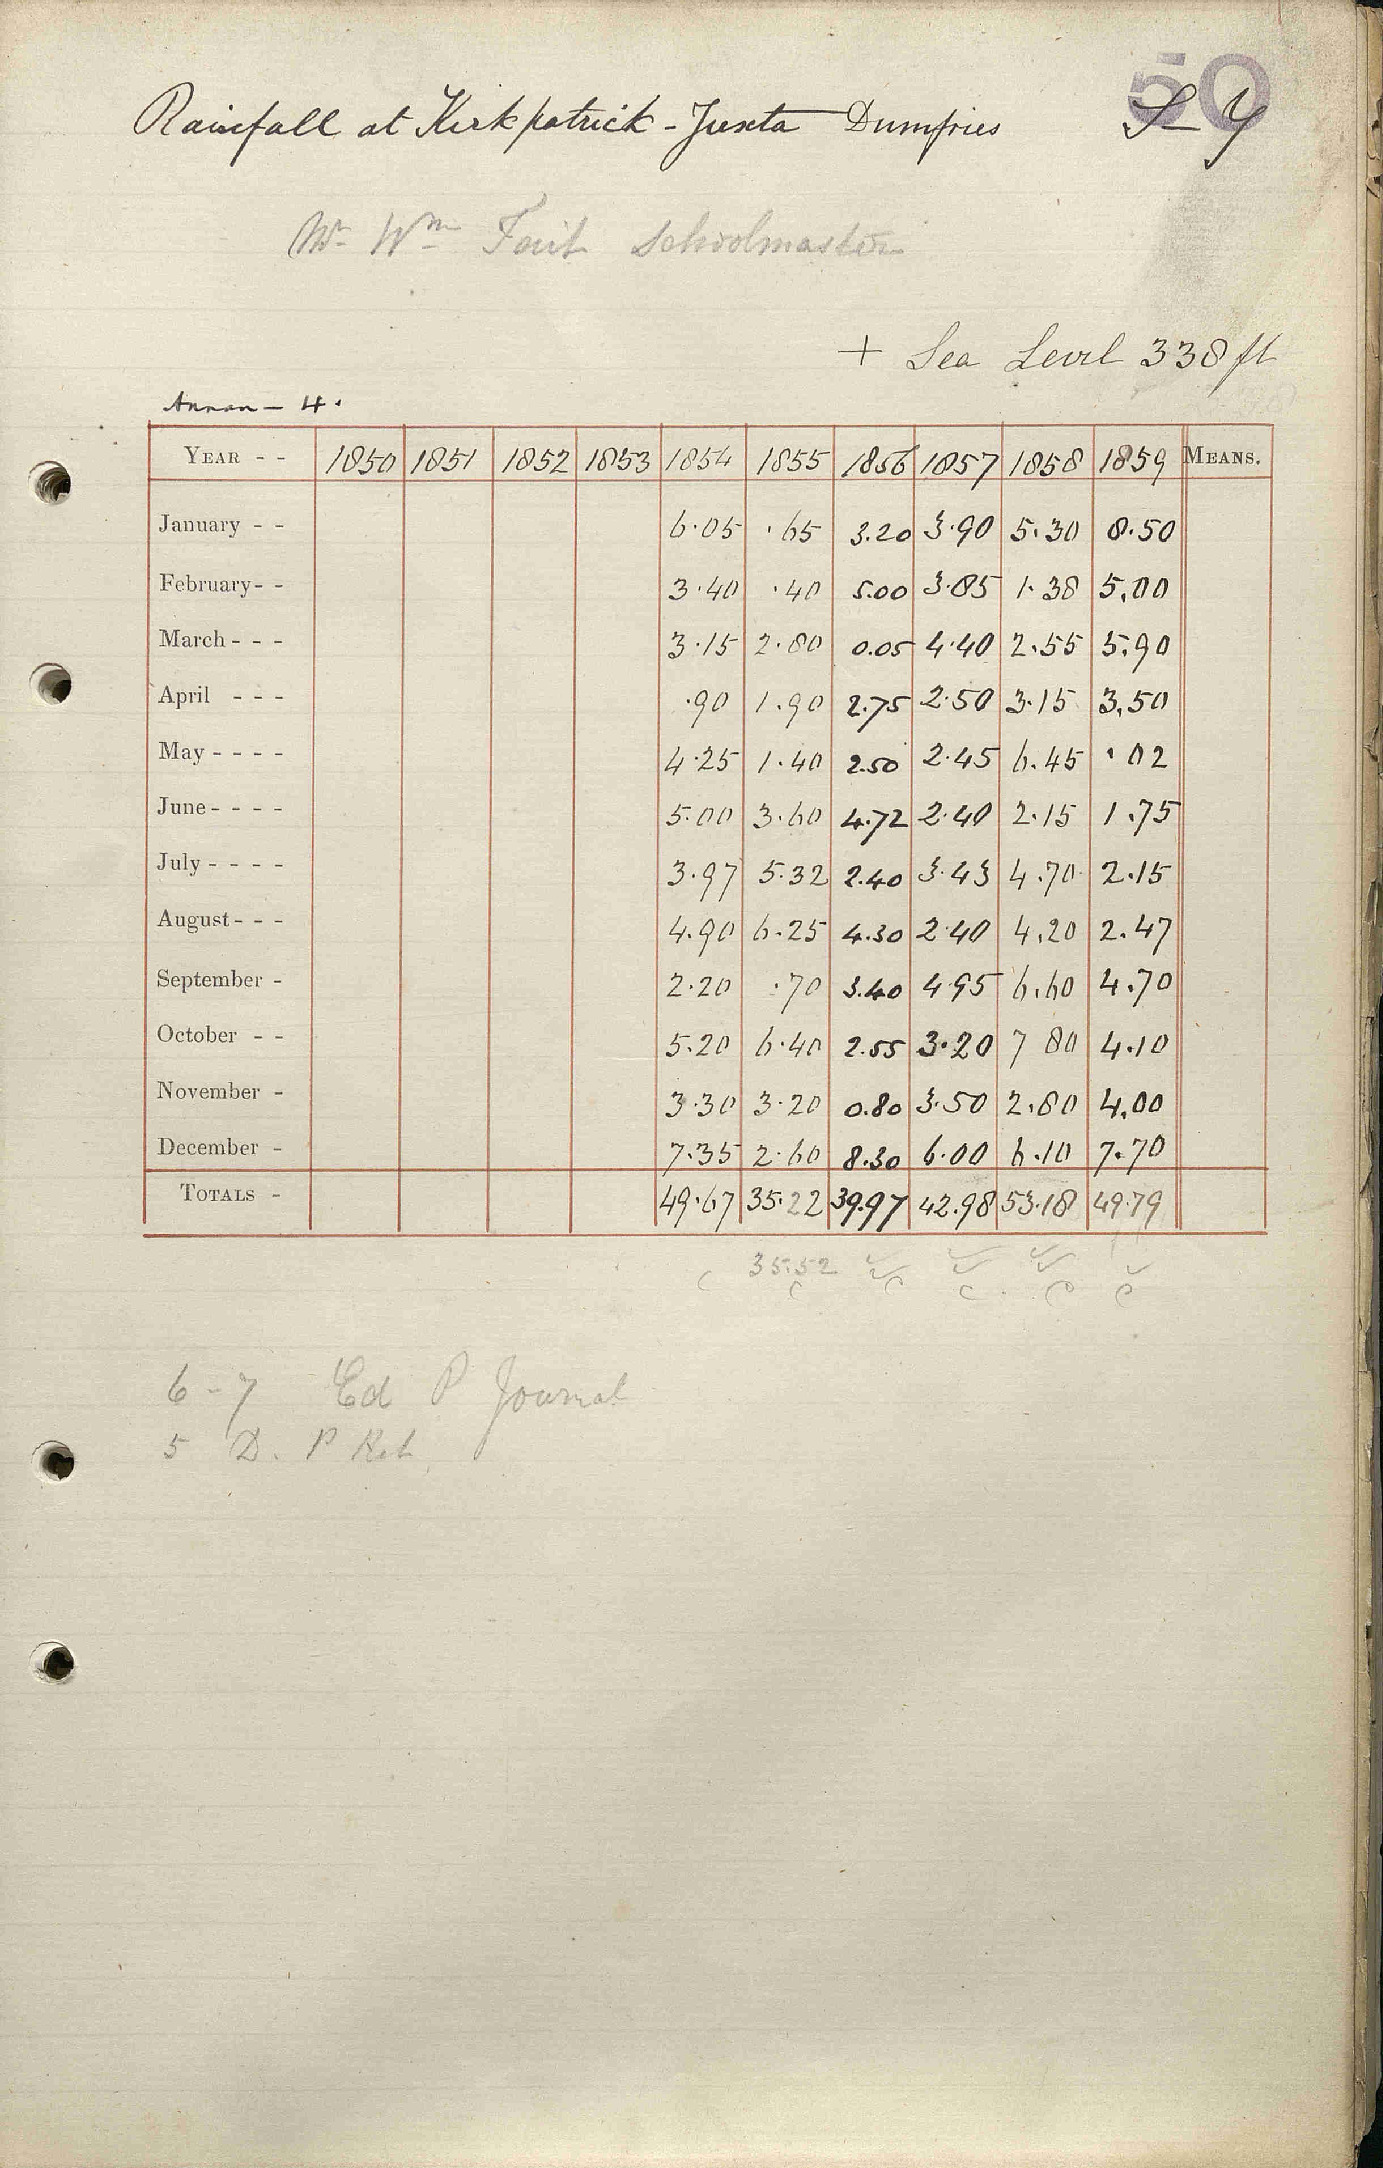 50
Rainfall at Kirkpatrick-Juxta Dumfries S-Y
Mr Wm Tait Schoolmaster
+ Sea Level 338 ft
Annan - 4.
YEAR - - 1850 1851 1852 1853 1854 1855 1856 1857 1858 1859 MEANS.
January - - 6.05 .65 3.20 3.90 5.30 8.50
February - - 3.40 .40 5.00 3.85 1.38 5.00
March - - - 3.15 2.80 0.05 4.40 2.55 5.90
April - - - .90 1.90 2.75 2.50 3.15 3.50
May - - - - 4.25 1.40 2.50 2.45 6.45 .02
June - - - - 5.00 3.60 4.72 2.40 2.15 1.75
July - - - - 3.97 5.32 2.40 3.43 4.70 2.15
August - - - 4.90 6.25 4.30 2.40 4.20 2.47
September - 2.20 .70 3.40 4.95 6.60 4.70
October - - 5.20 6.40 2.55 3.20 7 80 4.10
November - 3.30 3.20 0.80 3.50 2.80 4.00
December - 7.35 2.60 8.30 6.00 6.10 7.70
TOTALS - 49.67 35.22 39.97 42.98 53.18 49.79
35.52
6-7 Ed P Journal
5 D. P Ret.